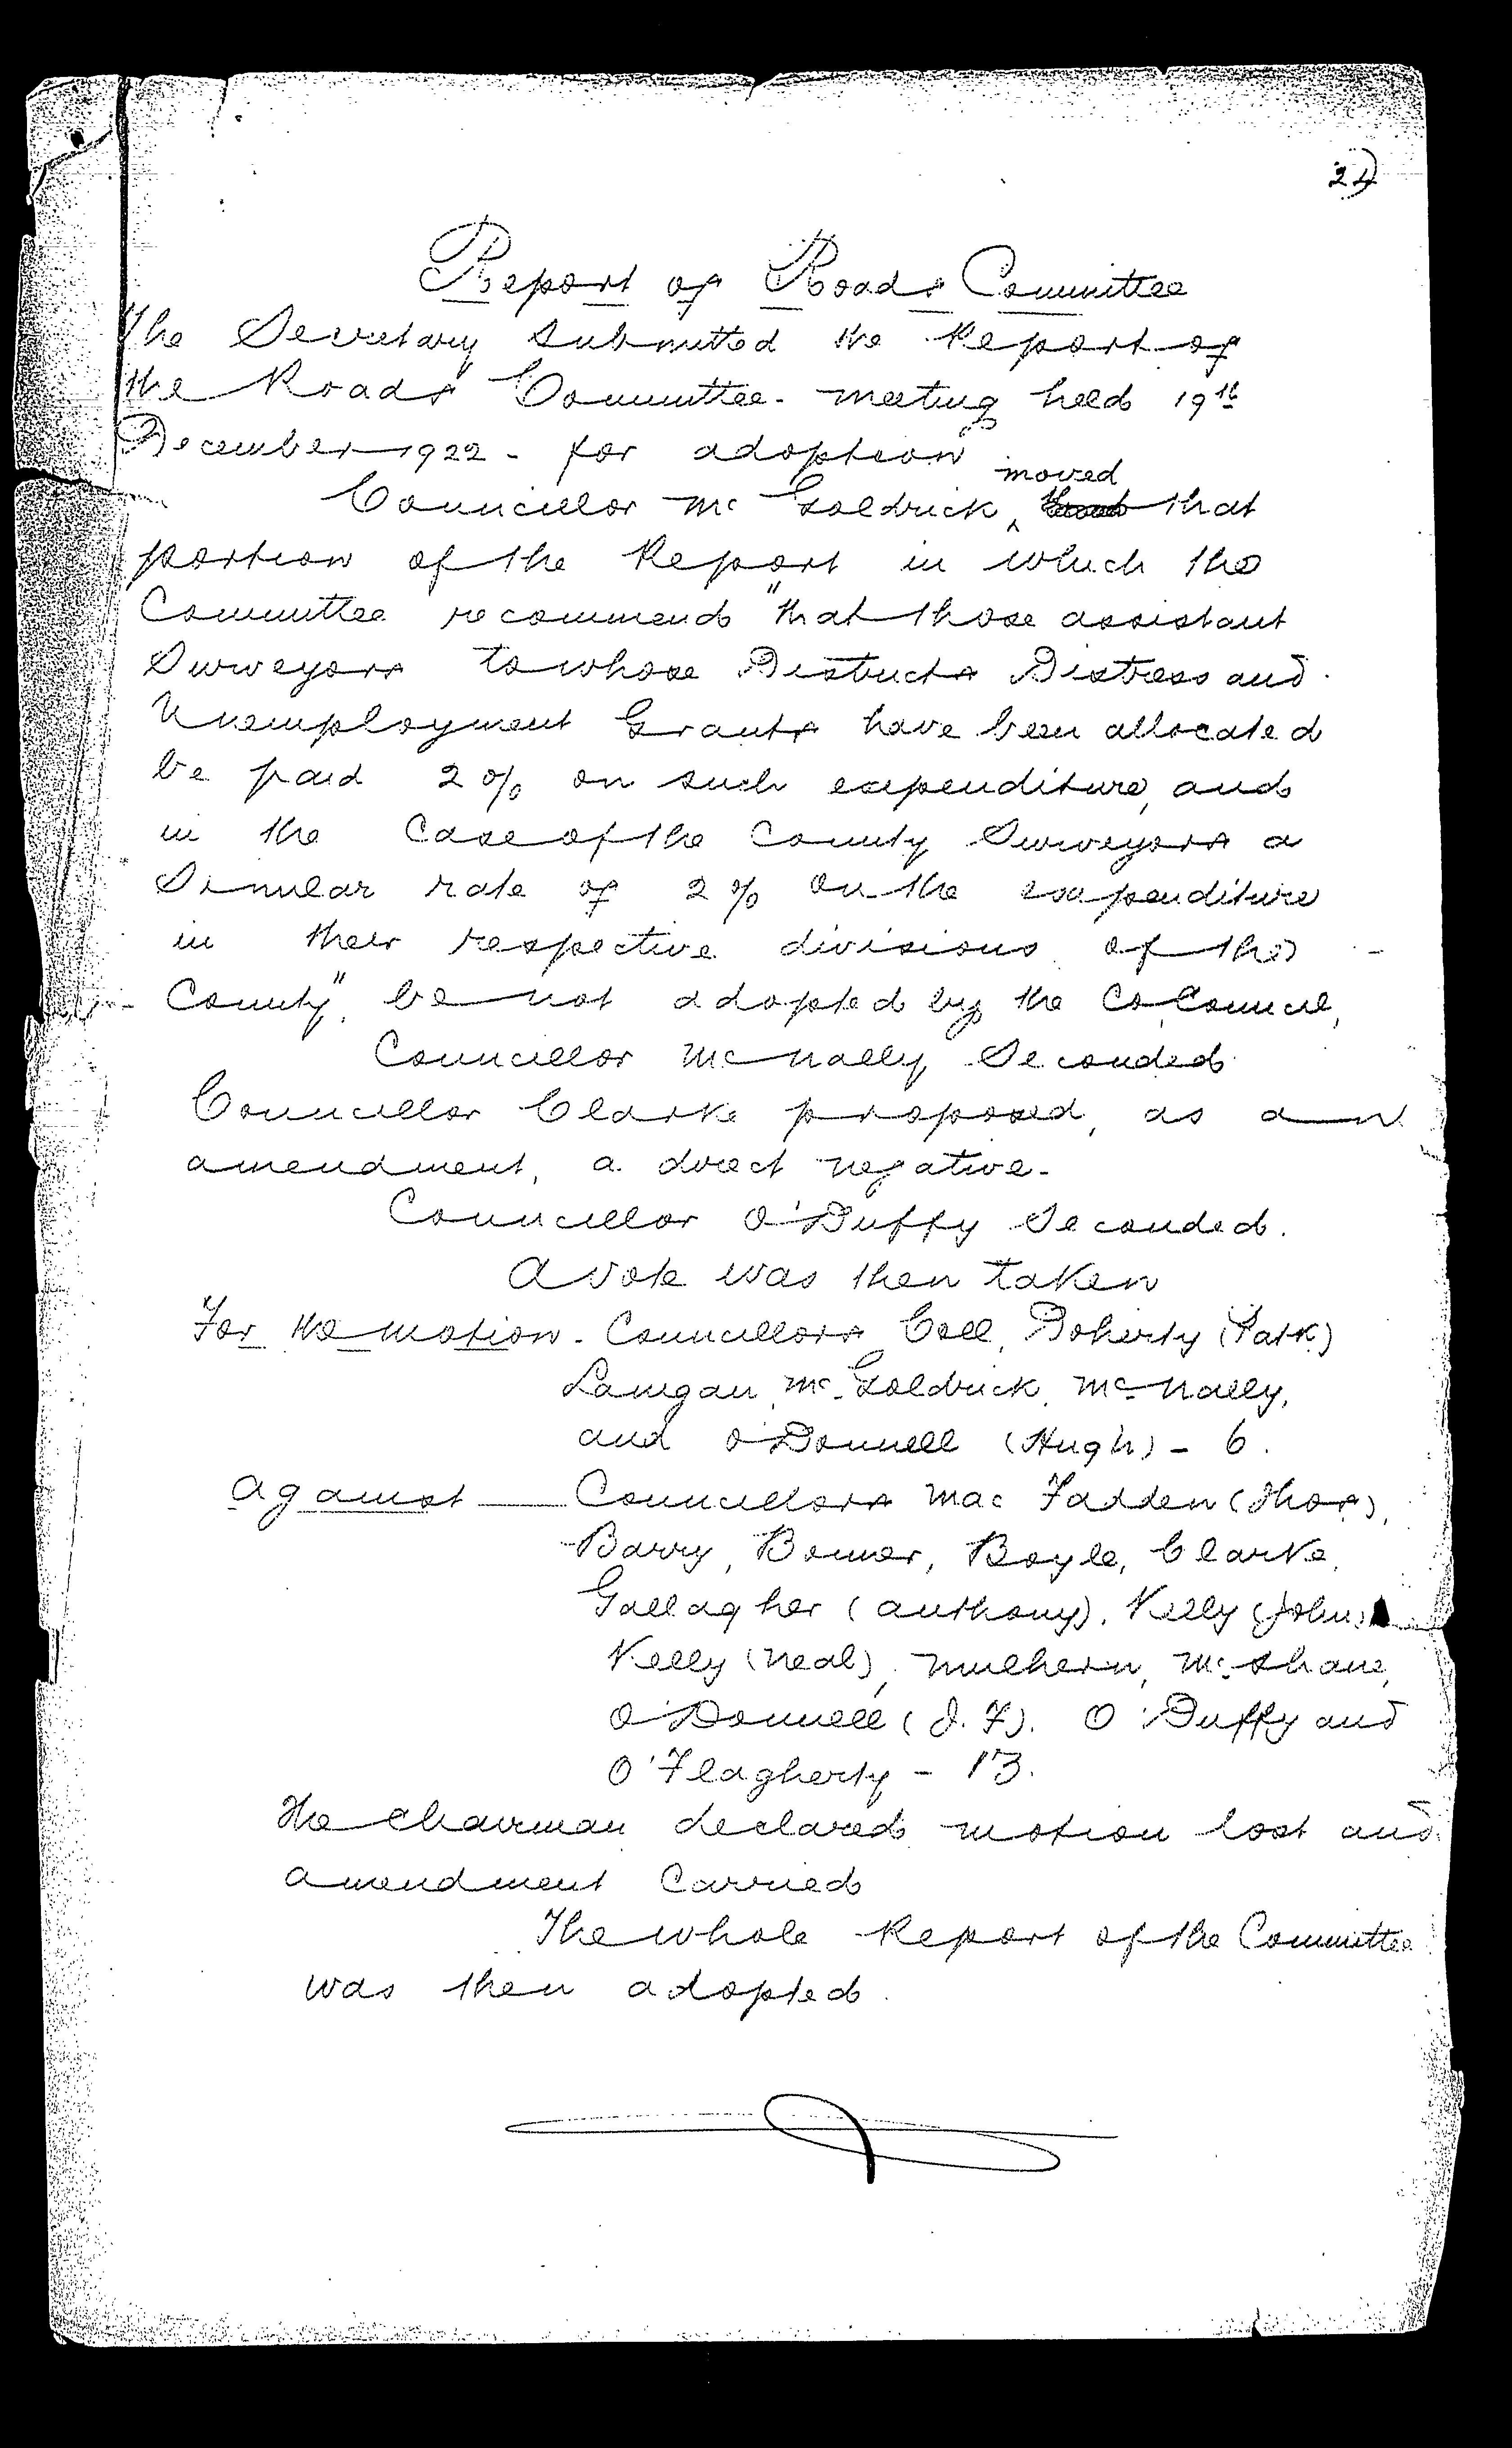 24)
Report of Roads Committee
The Secretary submitted the Report of
the Roads Committee - meeting held 19th
December 1922 - for adoption
moved
Councillor Mc Goldrick, that
portion of the Report in which the
Committee recommends "that those assistant
Surveyors to whose Districts Distress and
Unemployment Grants have been allocated
be paid 2% on such expenditure, and
in the case of the County Surveyors a
Similar rate of 2% on the expenditure
in their respective divisions of the
County", be not adopted by the Co. Council,
Councillor McNally Seconded
Councillor Clarke proposed, as an
amendment, a direct negative -
Councillor O'Duffy Seconded.
A vote was then taken
For the motion - Councillors Coll, Doherty (Patk)
Lanigan, Mc Goldrick, McNally,
and O'Donnell (Hugh) - 6.
Against — Councillors Mac Fadden (Thos),
Barry, Bonner, Boyle, Clarke,
Gallagher (Anthony), Kelly (John)
Kelly (Neal), Mulhern, McShane,
O'Donnell (J.F). O'Duffy and
O'Flagherty - 13.
The Chairman declared motion lost and
amendment Carried
The whole Report of the Committee
was then adopted.